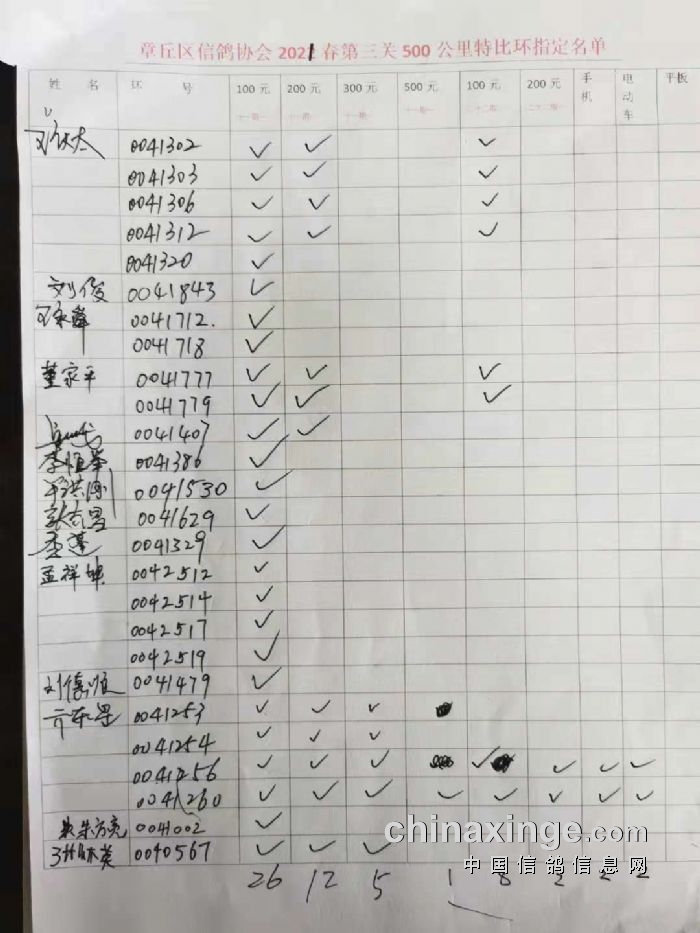 章丘区信鸽协会2021春第三关500公里特比环指定名单
姓 名 环 号 100元 200元 300元 500元 100元 200元 手机 电动车 平板
0041302 ✓ ✓ ✓
0041303 ✓ ✓ ✓
0041306 ✓ ✓ ✓
0041312 ✓ ✓ ✓
0041320 ✓
刘俊 0041843 ✓
0041712. ✓
0041718 ✓
董家平 0041777 ✓ ✓ ✓
0041779 ✓ ✓ ✓
0041407 ✓ ✓
李恒举 0041386 ✓
0041530 ✓
0041629 ✓
李莲 0041329 ✓
孟祥坤 0042512 ✓
0042514 ✓
0042517 ✓
0042519 ✓
刘德顺 0041479 ✓
0041253 ✓ ✓ ✓
0041254 ✓ ✓ ✓
0041256 ✓ ✓ ✓ ✓ ✓ ✓ ✓
0041260 ✓ ✓ ✓ ✓ ✓ ✓ ✓ ✓
朱方亮 0041002 ✓
0040567 ✓ ✓ ✓
26 12 5 1 8 2 2 2
chinaxinge.com
中国信鸽信息网